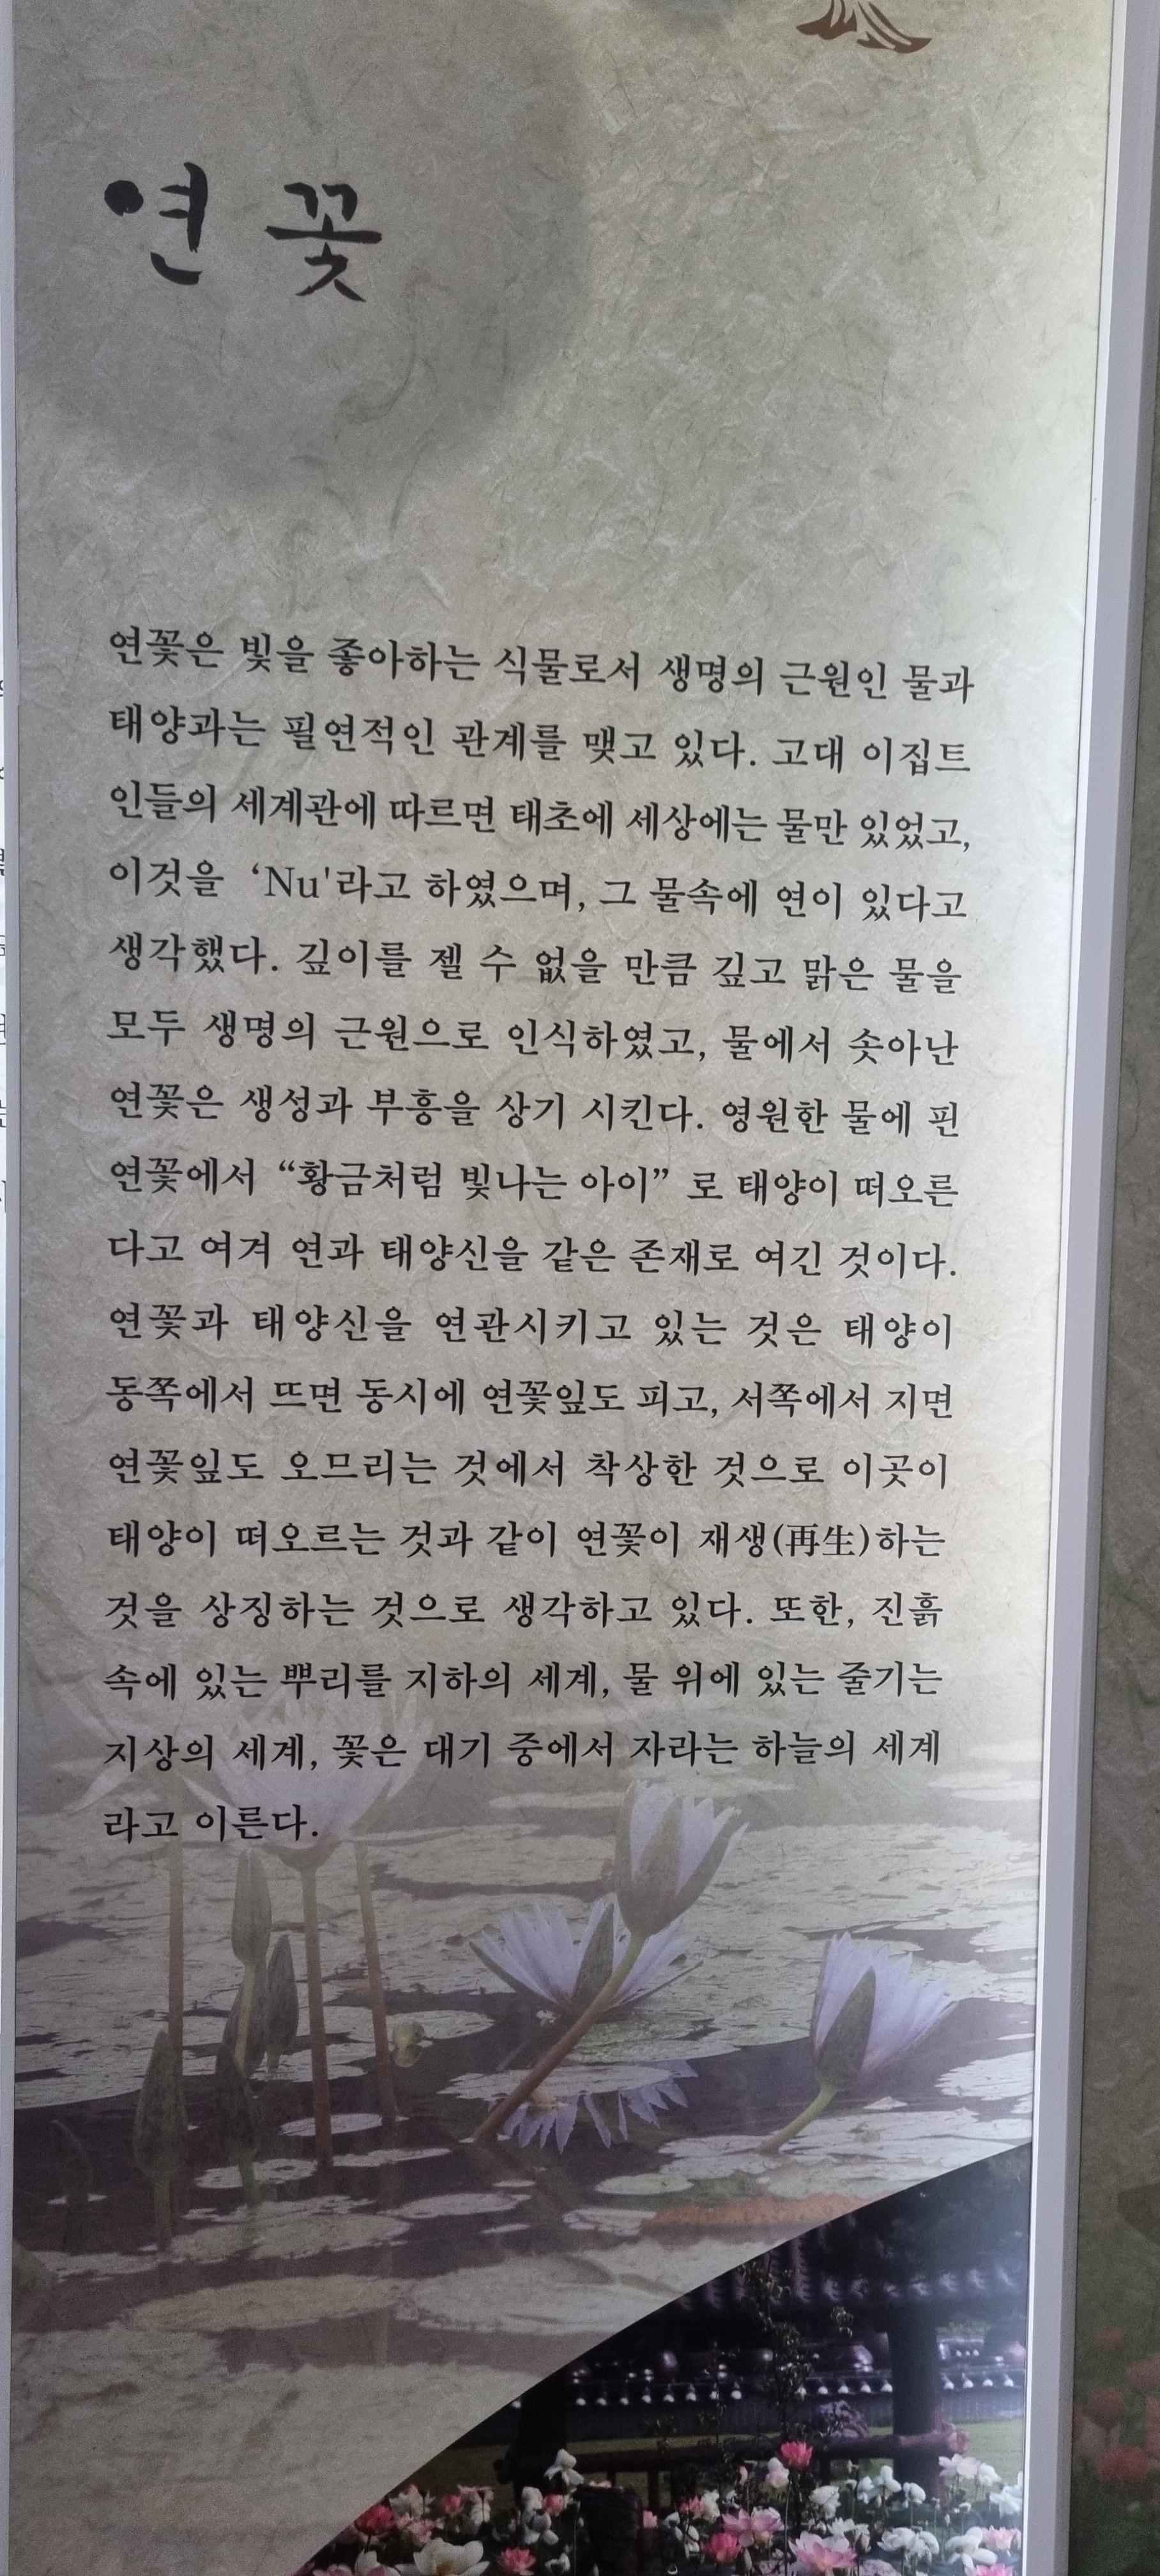 연꽃
연꽃은 빛을 좋아하는 식물로서 생명의 근원인 물과
태양과는 필연적인 관계를 맺고 있다. 고대 이집트
인들의 세계관에 따르면 태초에 세상에는 물만 있었고,
이것을 ‘Nu'라고 하였으며, 그 물속에 연이 있다고
생각했다. 깊이를 젤 수 없을 만큼 깊고 맑은 물을
모두 생명의 근원으로 인식하였고, 물에서 솟아난
연꽃은 생성과 부흥을 상기 시킨다. 영원한 물에 핀
연꽃에서 “황금처럼 빛나는 아이” 로 태양이 떠오른
다고 여겨 연과 태양신을 같은 존재로 여긴 것이다.
연꽃과 태양신을 연관시키고 있는 것은 태양이
동쪽에서 뜨면 동시에 연꽃잎도 피고, 서쪽에서 지면
연꽃잎도 오므리는 것에서 착상한 것으로 이곳이
태양이 떠오르는 것과 같이 연꽃이 재생(再生)하는
것을 상징하는 것으로 생각하고 있다. 또한, 진흙
속에 있는 뿌리를 지하의 세계, 물 위에 있는 줄기는
지상의 세계, 꽃은 대기 중에서 자라는 하늘의 세계
라고 이른다.